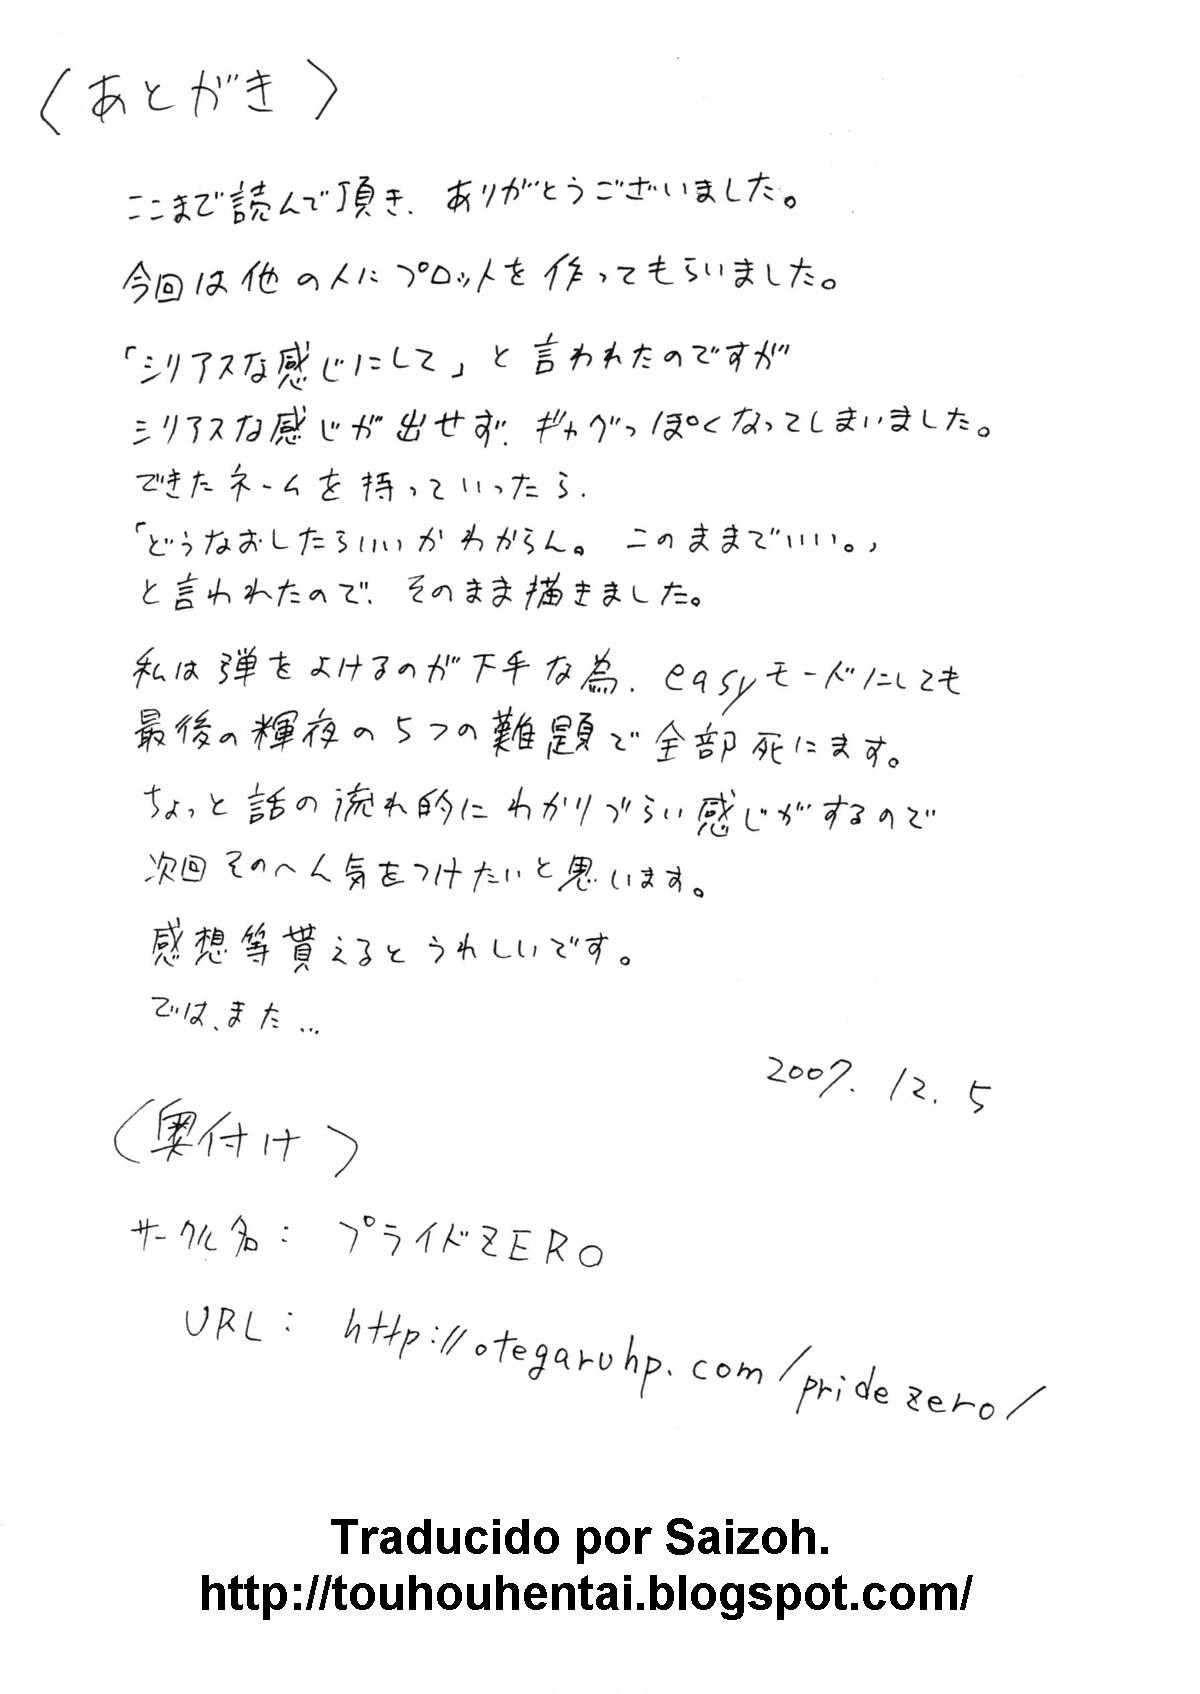 〈あとがき〉
ここまで読んで頂き、ありがとうございました。
今回は他の人にプロットを作ってもらいました。
「シリアスな感じにして」と言われたのですが
シリアスな感じが出せず、ギャグっぽくなってしまいました。
できたネームを持っていったら、
「どうなおしたらいいかわからん。このままでいい。」
と言われたので、そのまま描きました。
私は弾をよけるのが下手な為、easyモードにしても
最後の輝夜の5つの難題で全部死にます。
ちょっと話の流れ的にわかりづらい感じがするので
次回そのへん気をつけたいと思います。
感想等貰えるとうれしいです。
では、また…
2007.12.5
(奥付け)
サークル名: プライドZERO
URL: http://otegaruhp.com/pridezero/
Traducido por Saizoh.
http://touhouhentai.blogspot.com/